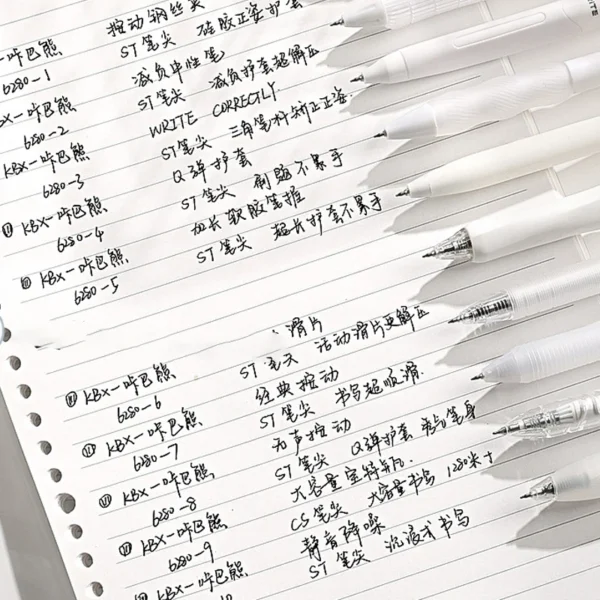 按动钢丝夹
咔巴熊 ST笔尖 硅胶正姿护套
6280-1 减负中性笔
KBX-咔巴熊 ST笔尖 减负护套超解压
6280-2 WRITE CORRECTLY.
KBX-咔巴熊 ST笔尖 三角笔杆矫正正姿.
6280-3 Q弹护套
KBX-咔巴熊 ST笔尖 刷题不累手
6280-4 加长软胶笔握
KBX-咔巴熊 ST笔尖 超长护套不累手
6280-5
滑片
KBX-咔巴熊 ST 活动滑片更解压
6280-6 经典按动
KBX-咔巴熊 ST笔尖 书写超顺滑.
6280-7 无声按动
KBX-咔巴熊 ST笔尖 Q弹护套 笔身
6280-8 大容量宝特瓶.
KBX-咔巴熊 CS笔尖 大容量书写 1280米+
6280-9 静音降噪
KBX-咔巴熊 ST笔尖 沉浸式书写